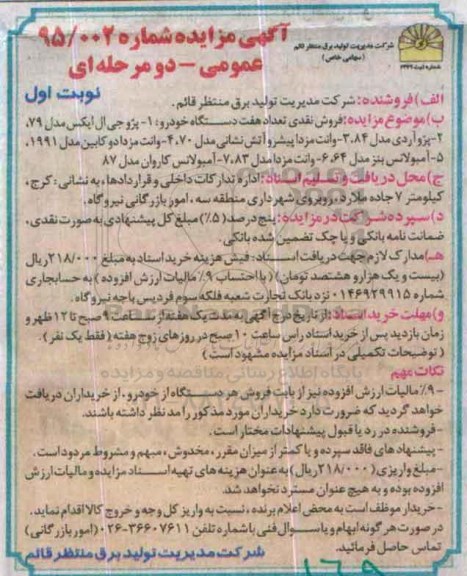 آگهی مزایده شماره ۹۵/۰۰۲
عمومی - دو مرحله ای
شرکت مدیریت تولید برق منتظر قائم
(سهامی خاص)
نوبت اول
الف) فروشنده: شرکت مدیریت تولید برق منتظر قائم.
ب) موضوع مزایده: فروش نقدی تعداد هفت دستگاه خودرو: ۱- پژو جی ال ایکس مدل ۷۹،
۲- پژو آردی مدل ۸۴، ۳- وانت مزدا پیشرو آتش نشانی مدل ۷۰، ۴- وانت مزدا دو کابین مدل ۱۹۹۱،
۵- آمبولانس بنز مدل ۶۴، ۶- وانت مزدا مدل ۸۳، ۷- آمبولانس کاروان مدل ۸۷
ج) محل دریافت و تسلیم اسناد: اداره تدارکات داخلی و قراردادها، به نشانی: کرج،
کیلومتر ۷ جاده ملارد، روبروی شهرداری منطقه سه، امور بازرگانی نیروگاه.
د) سپرده شرکت در مزایده: پنج درصد (۵٪) مبلغ کل پیشنهادی به صورت نقدی،
ضمانت نامه بانکی و یا چک تضمین شده بانکی.
هـ) مدارک لازم جهت دریافت اسناد: فیش هزینه خرید اسناد به مبلغ ۲۱۸/۰۰۰ ریال
(بیست و یک هزار و هشتصد تومان) (با احتساب ۹٪ مالیات ارزش افزوده) به حسابجاری
شماره ۰۱۴۶۹۲۹۹۱۵ نزد بانک تجارت شعبه فلکه سوم فردیس یا جه نیروگاه.
و) مهلت خرید اسناد: از تاریخ درج آگهی به مدت یک هفته از ساعت ۹ صبح تا ۱۲ ظهر و
زمان بازدید پس از خرید اسناد راس ساعت ۱۰ صبح در روزهای زوج هفته (فقط یک نفر).
(توضیحات تکمیلی در اسناد مزایده مشهود است)
نکات مهم
- ۹٪ مالیات ارزش افزوده نیز از بابت فروش هر دستگاه از خودرو، از خریداران دریافت
خواهد گردید که ضرورت دارد خریداران مورد مذکور را مد نظر داشته باشند.
- فروشنده در رد یا قبول پیشنهادات مختار است.
- پیشنهاد های فاقد سپرده و یا کمتر از میزان مقرر، مخدوش، مبهم و مشروط مردود است.
- مبلغ واریزی (۲۱۸/۰۰۰ ریال) به عنوان هزینه های تهیه اسناد مزایده و مالیات ارزش
افزوده بوده و به هیچ عنوان مسترد نخواهد شد.
- خریدار موظف است به محض اعلام برنده، نسبت به واریز کل وجه و خروج کالا اقدام نماید.
در صورت هر گونه ابهام و یا سوال فنی با شماره تلفن ۳۶۶۰۷۶۱۱-۰۲۶ (امور بازرگانی)
تماس حاصل فرمائید.
شرکت مدیریت تولید برق منتظر قائم
۱۶۹